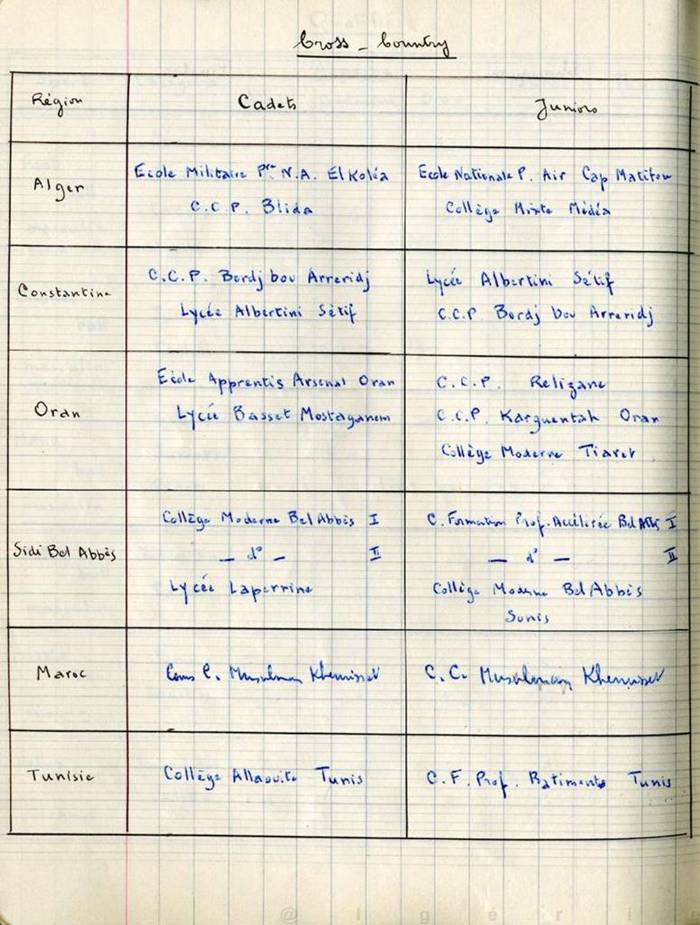 Cross - Country
Région Cadets Juniors
Alger
Ecole Militaire Pre N.A. El Koléa
C.C.P. Blida
Ecole Nationale P. Air Cap Matifou
Collège Mixte Médéa
Constantine
C.C.P. Bordj bou Arreridj
Lycée Albertini Sétif
Lycée Albertini Sétif
C.C.P Bordj bou Arreridj
Oran
Ecole Apprentis Arsenal Oran
Lycée Basset Mostaganem
C.C.P. Relizane
C.C.P. Karguentah Oran
Collège Moderne Tiaret
Sidi Bel Abbès
Collège Moderne Bel Abbès I
— d° — II
Lycée Laperrine
C. Formation Prof. Accélérée Bel Abbès I
— d° — II
Collège Moderne Bel Abbès
Sonis
Maroc
Cours C. Musulman Khemisset
C.C. Musulman Khemisset
Tunisie
Collège Allaouite Tunis
C.F. Prof. Batiments Tunis
@ l g é r i e